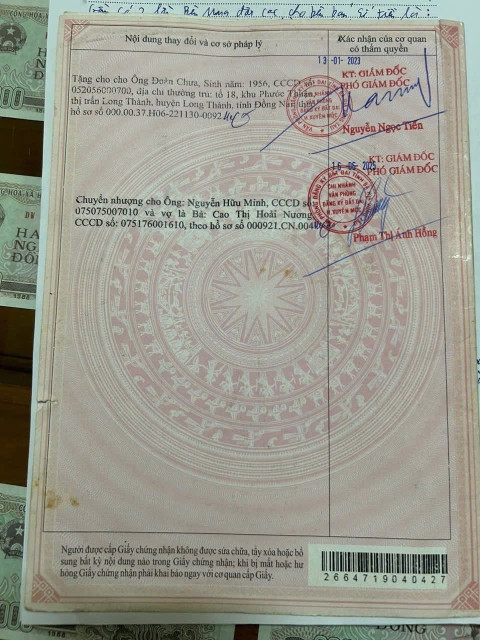 Nội dung thay đổi và cơ sở pháp lý
Xác nhận của cơ quan
có thẩm quyền
Tặng cho cho Ông Đoàn Chưa, Sinh năm: 1956, CCCD
052056000700, địa chỉ thường trú: tổ 18, khu Phước Thuận,
thị trấn Long Thành, huyện Long Thành, tỉnh Đồng Nai, theo
hồ sơ số 000.00.37.H06-221130-0092
13 -01- 2023
KT. GIÁM ĐỐC
PHÓ GIÁM ĐỐC
CHI NHÁNH
H.XUYÊN MỘC
Nguyễn Ngọc Tiến
Chuyển nhượng cho Ông: Nguyễn Hữu Minh, CCCD số
075075007010 và vợ là Bà: Cao Thị Hoài Nương,
CCCD số: 075176001610, theo hồ sơ số 000921.CN.004
KT. GIÁM ĐỐC
PHÓ GIÁM ĐỐC
CHI NHÁNH
VĂN PHÒNG
ĐĂNG KÝ ĐẤT ĐAI
H.XUYÊN MỘC
Phạm Thị Ánh Hồng
Người được cấp Giấy chứng nhận không được sửa chữa, tẩy xóa hoặc bổ
sung bất kỳ nội dung nào trong Giấy chứng nhận; khi bị mất hoặc hư
hỏng Giấy chứng nhận phải khai báo ngay với cơ quan cấp Giấy.
2664719040427